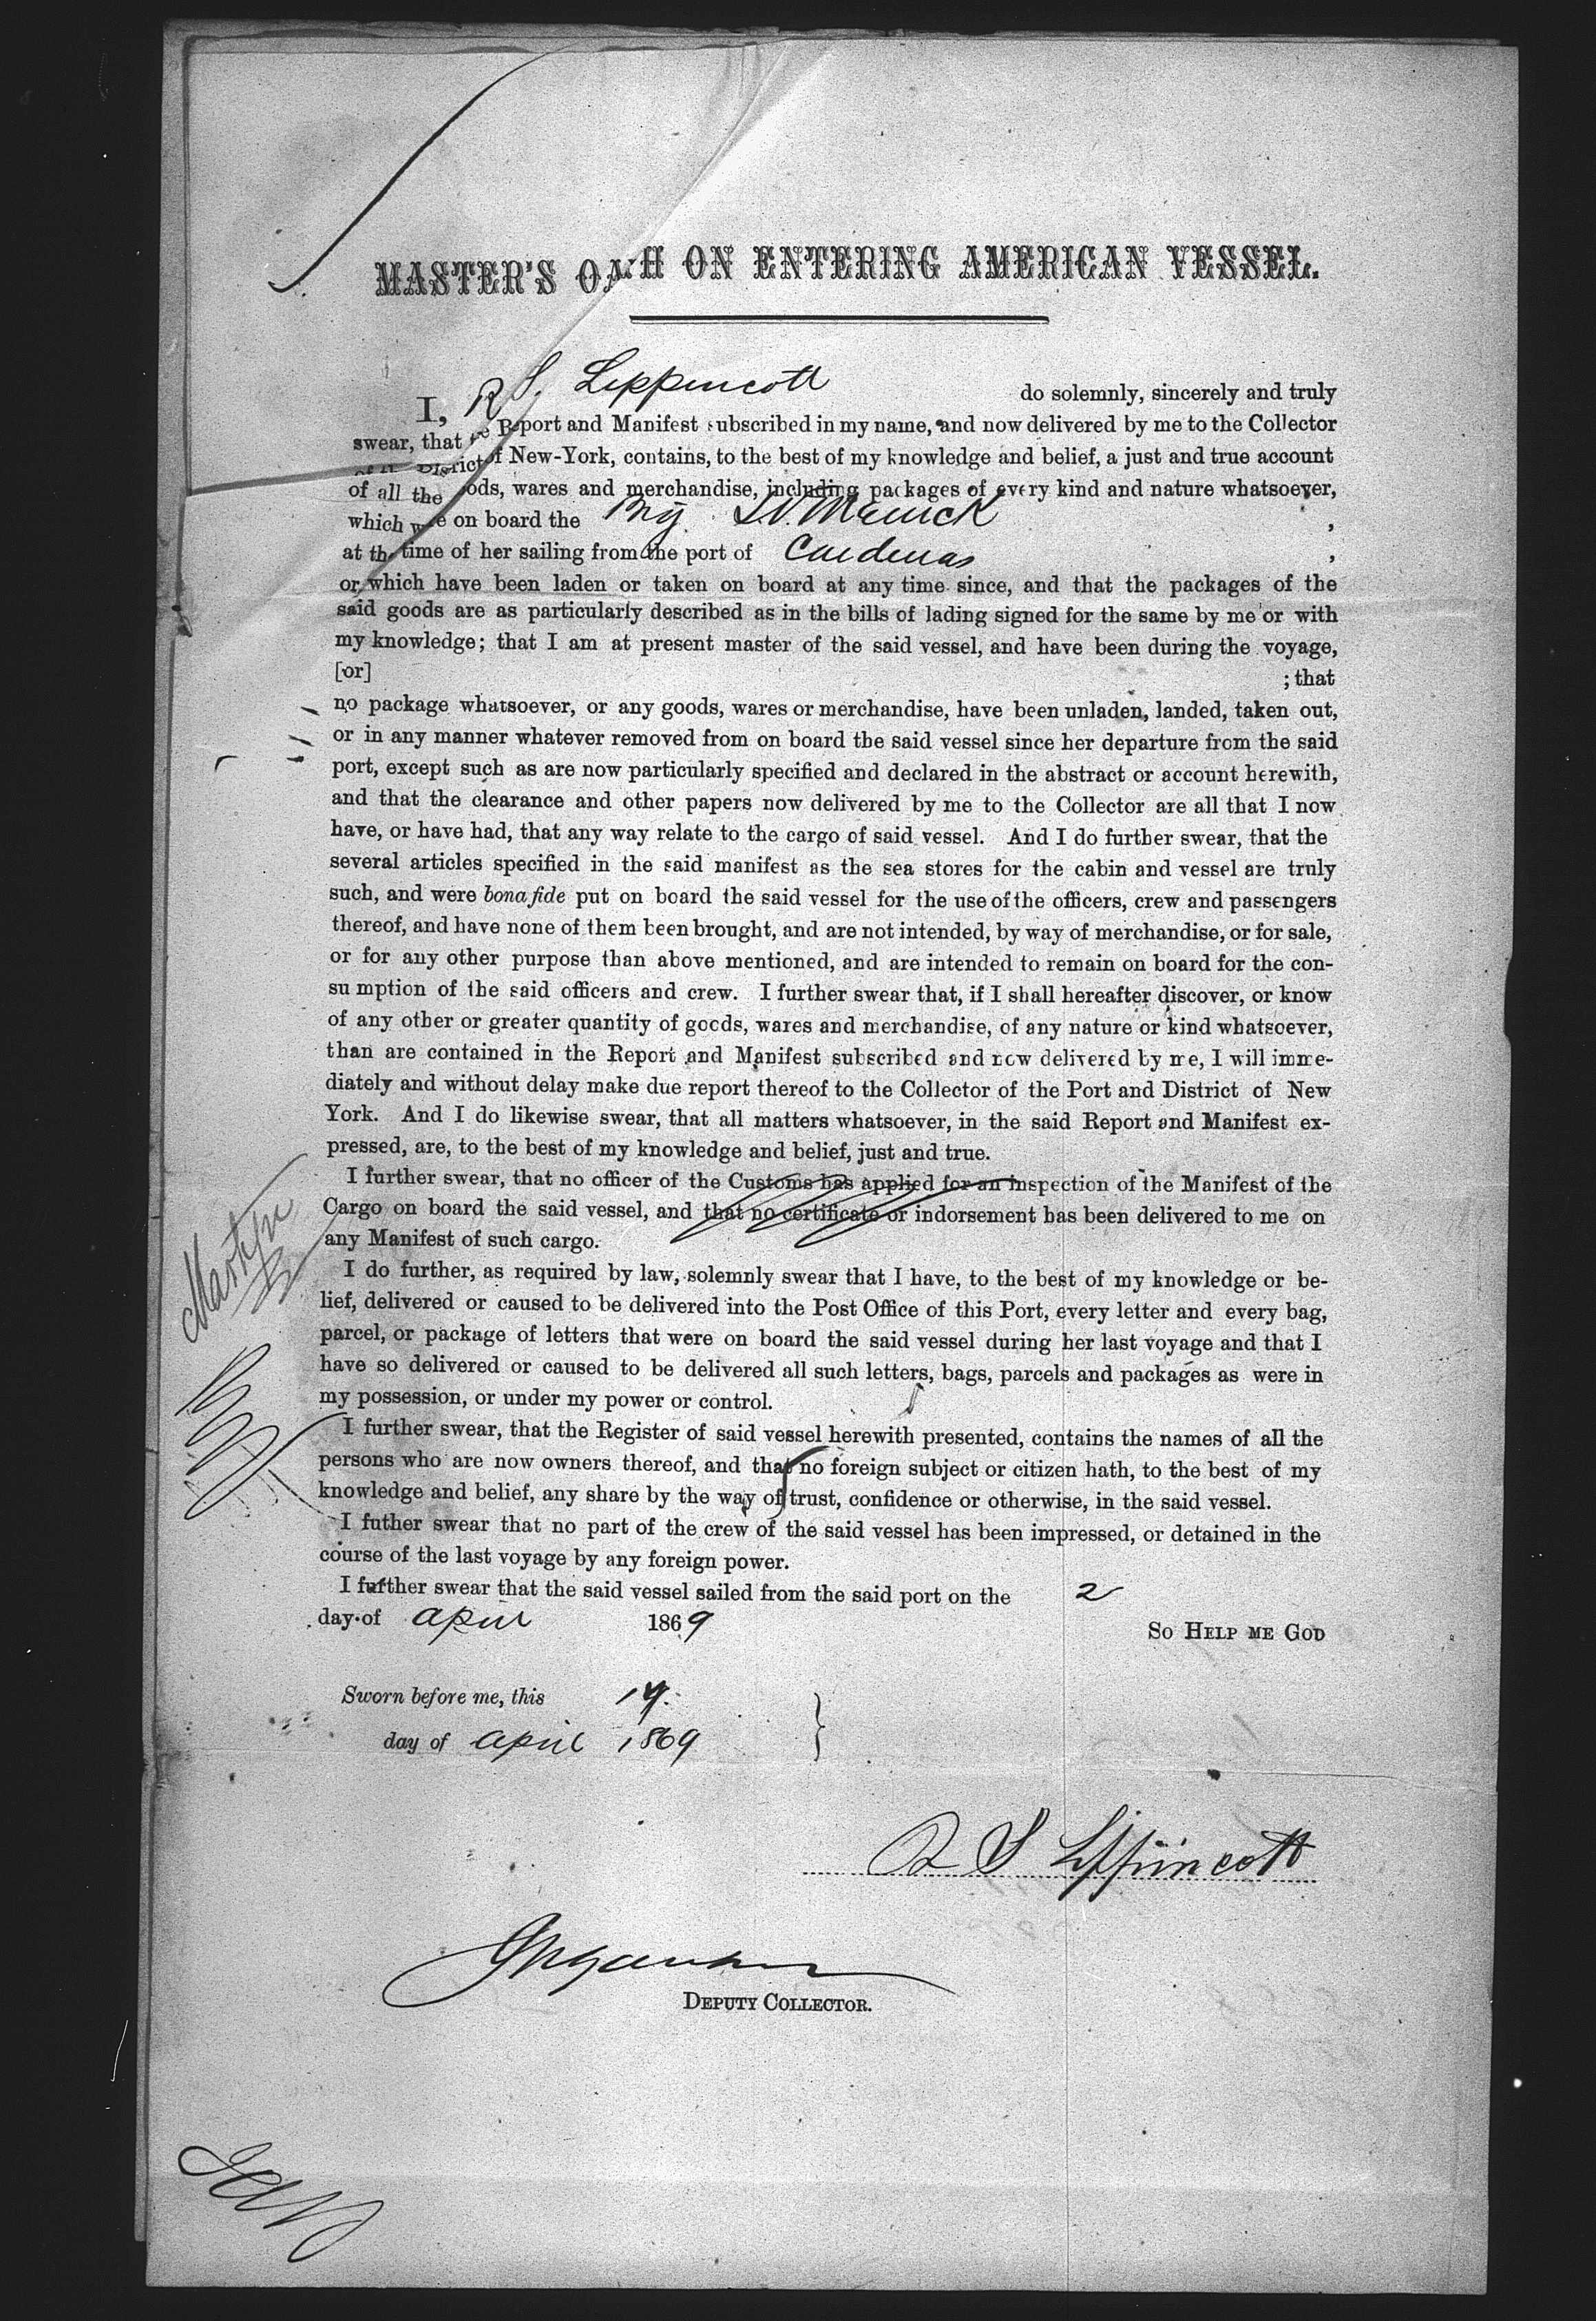 MASTER'S OATH ON ENTERING AMERICAN VESSEL.
I, R S. Lippincott do solemnly, sincerely and truly
swear, that the Report and Manifest subscribed in my name, and now delivered by me to the Collector
of the District of New-York, contains, to the best of my knowledge and belief, a just and true account
of all the goods, wares and merchandise, including packages of every kind and nature whatsoever,
which were on board the Brig ,
at the time of her sailing from the port of Cardenas ,
or which have been laden or taken on board at any time since, and that the packages of the
said goods are as particularly described as in the bills of lading signed for the same by me or with
my knowledge; that I am at present master of the said vessel, and have been during the voyage,
[or] ; that
no package whatsoever, or any goods, wares or merchandise, have been unladen, landed, taken out,
or in any manner whatever removed from on board the said vessel since her departure from the said
port, except such as are now particularly specified and declared in the abstract or account herewith,
and that the clearance and other papers now delivered by me to the Collector are all that I now
have, or have had, that any way relate to the cargo of said vessel. And I do further swear, that the
several articles specified in the said manifest as the sea stores for the cabin and vessel are truly
such, and were bona fide put on board the said vessel for the use of the officers, crew and passengers
thereof, and have none of them been brought, and are not intended, by way of merchandise, or for sale,
or for any other purpose than above mentioned, and are intended to remain on board for the con-
su mption of the said officers and crew. I further swear that, if I shall hereafter discover, or know
of any other or greater quantity of goods, wares and merchandise, of any nature or kind whatsoever,
than are contained in the Report and Manifest subscribed and now delivered by me, I will imme-
diately and without delay make due report thereof to the Collector of the Port and District of New
York. And I do likewise swear, that all matters whatsoever, in the said Report and Manifest ex-
pressed, are, to the best of my knowledge and belief, just and true.
I further swear, that no officer of the Customs has applied for an inspection of the Manifest of the
Cargo on board the said vessel, and that no certificate or indorsement has been delivered to me on
any Manifest of such cargo.
I do further, as required by law, solemnly swear that I have, to the best of my knowledge or be-
lief, delivered or caused to be delivered into the Post Office of this Port, every letter and every bag,
parcel, or package of letters that were on board the said vessel during her last voyage and that I
have so delivered or caused to be delivered all such letters, bags, parcels and packages as were in
my possession, or under my power or control.
I further swear, that the Register of said vessel herewith presented, contains the names of all the
persons who are now owners thereof, and that no foreign subject or citizen hath, to the best of my
knowledge and belief, any share by the way of trust, confidence or otherwise, in the said vessel.
I futher swear that no part of the crew of the said vessel has been impressed, or detained in the
course of the last voyage by any foreign power.
I further swear that the said vessel sailed from the said port on the 2
day of April 1869 SO HELP ME GOD
Sworn before me, this
day of April 1869
R S Lippincott
DEPUTY COLLECTOR.